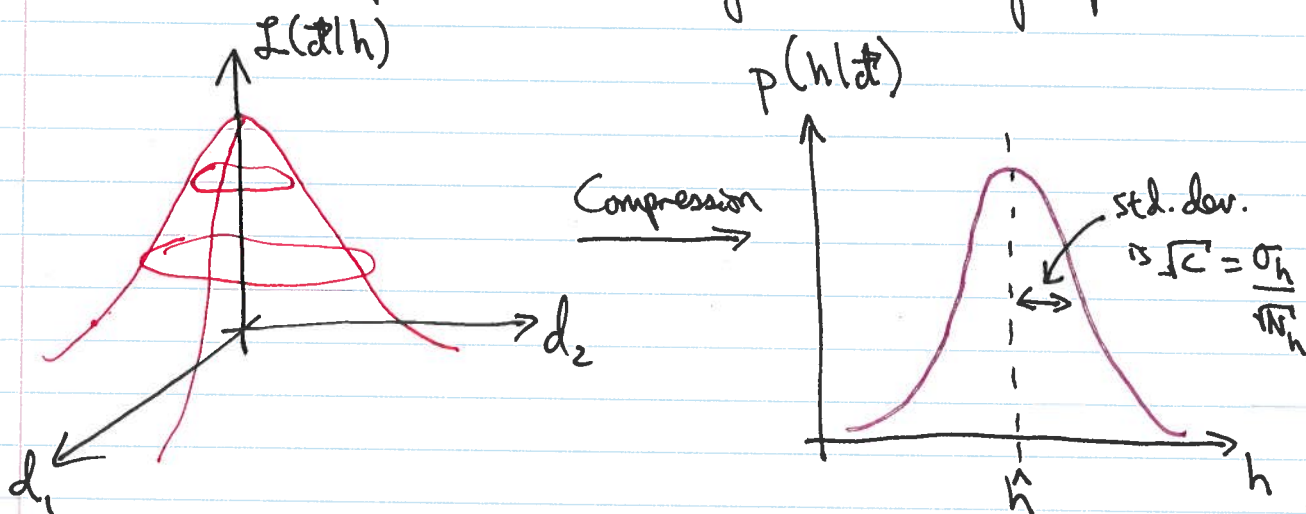 L(d|h)
d₂
d₁
Compression
p(h|d)
std. dev.
is √C = σh/√Nh
ĥ
h